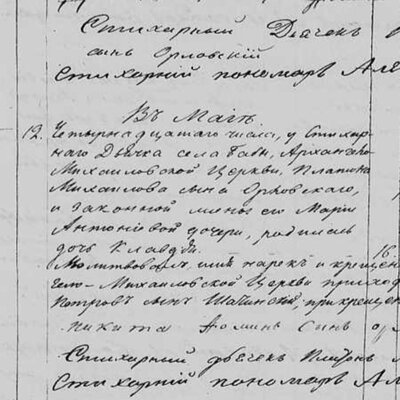 Стихарный Дьячек
сынъ Орловскій
Стихарній пономарь Але
Въ Маіѣ.
12. Четырнадцатаго числа, у Стихар-
наго Дьячка села Бабъ, Архангело-
Михаиловской Церкви, Платона
Михаилова сына Орловскаго,
и законной жены его Маріи
Антоніевой дочери, родилась
дочь Клавдія. 16.
Молитвовалъ, имя нарекъ и крещен
гело-Михаиловской Церкви приход
Петровъ сынъ Шачинскій, при крещен
никита Ѳоминъ сынъ ор
Стихарный дьячекъ Платонъ
Стихарній пономарь Ал